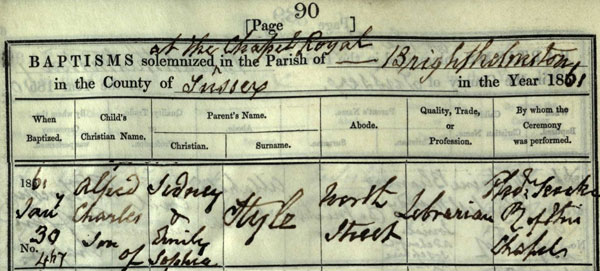 90
[Page ]
at the Chapel Royal
BAPTISMS solemnized in the Parish of — Brighthelmston
in the County of Sussex in the Year 1861
When Baptized.
Child's Christian Name.
Parent's Name.
Christian.
Surname.
Abode.
Quality, Trade, or Profession.
By whom the Ceremony was performed.
1861
Jany
30
No.
467
Alfred
Charles
Son
of
Sidney
&
Emily
Sophia
Style
North
Street
Librarian
Thos.
of this
Chapel